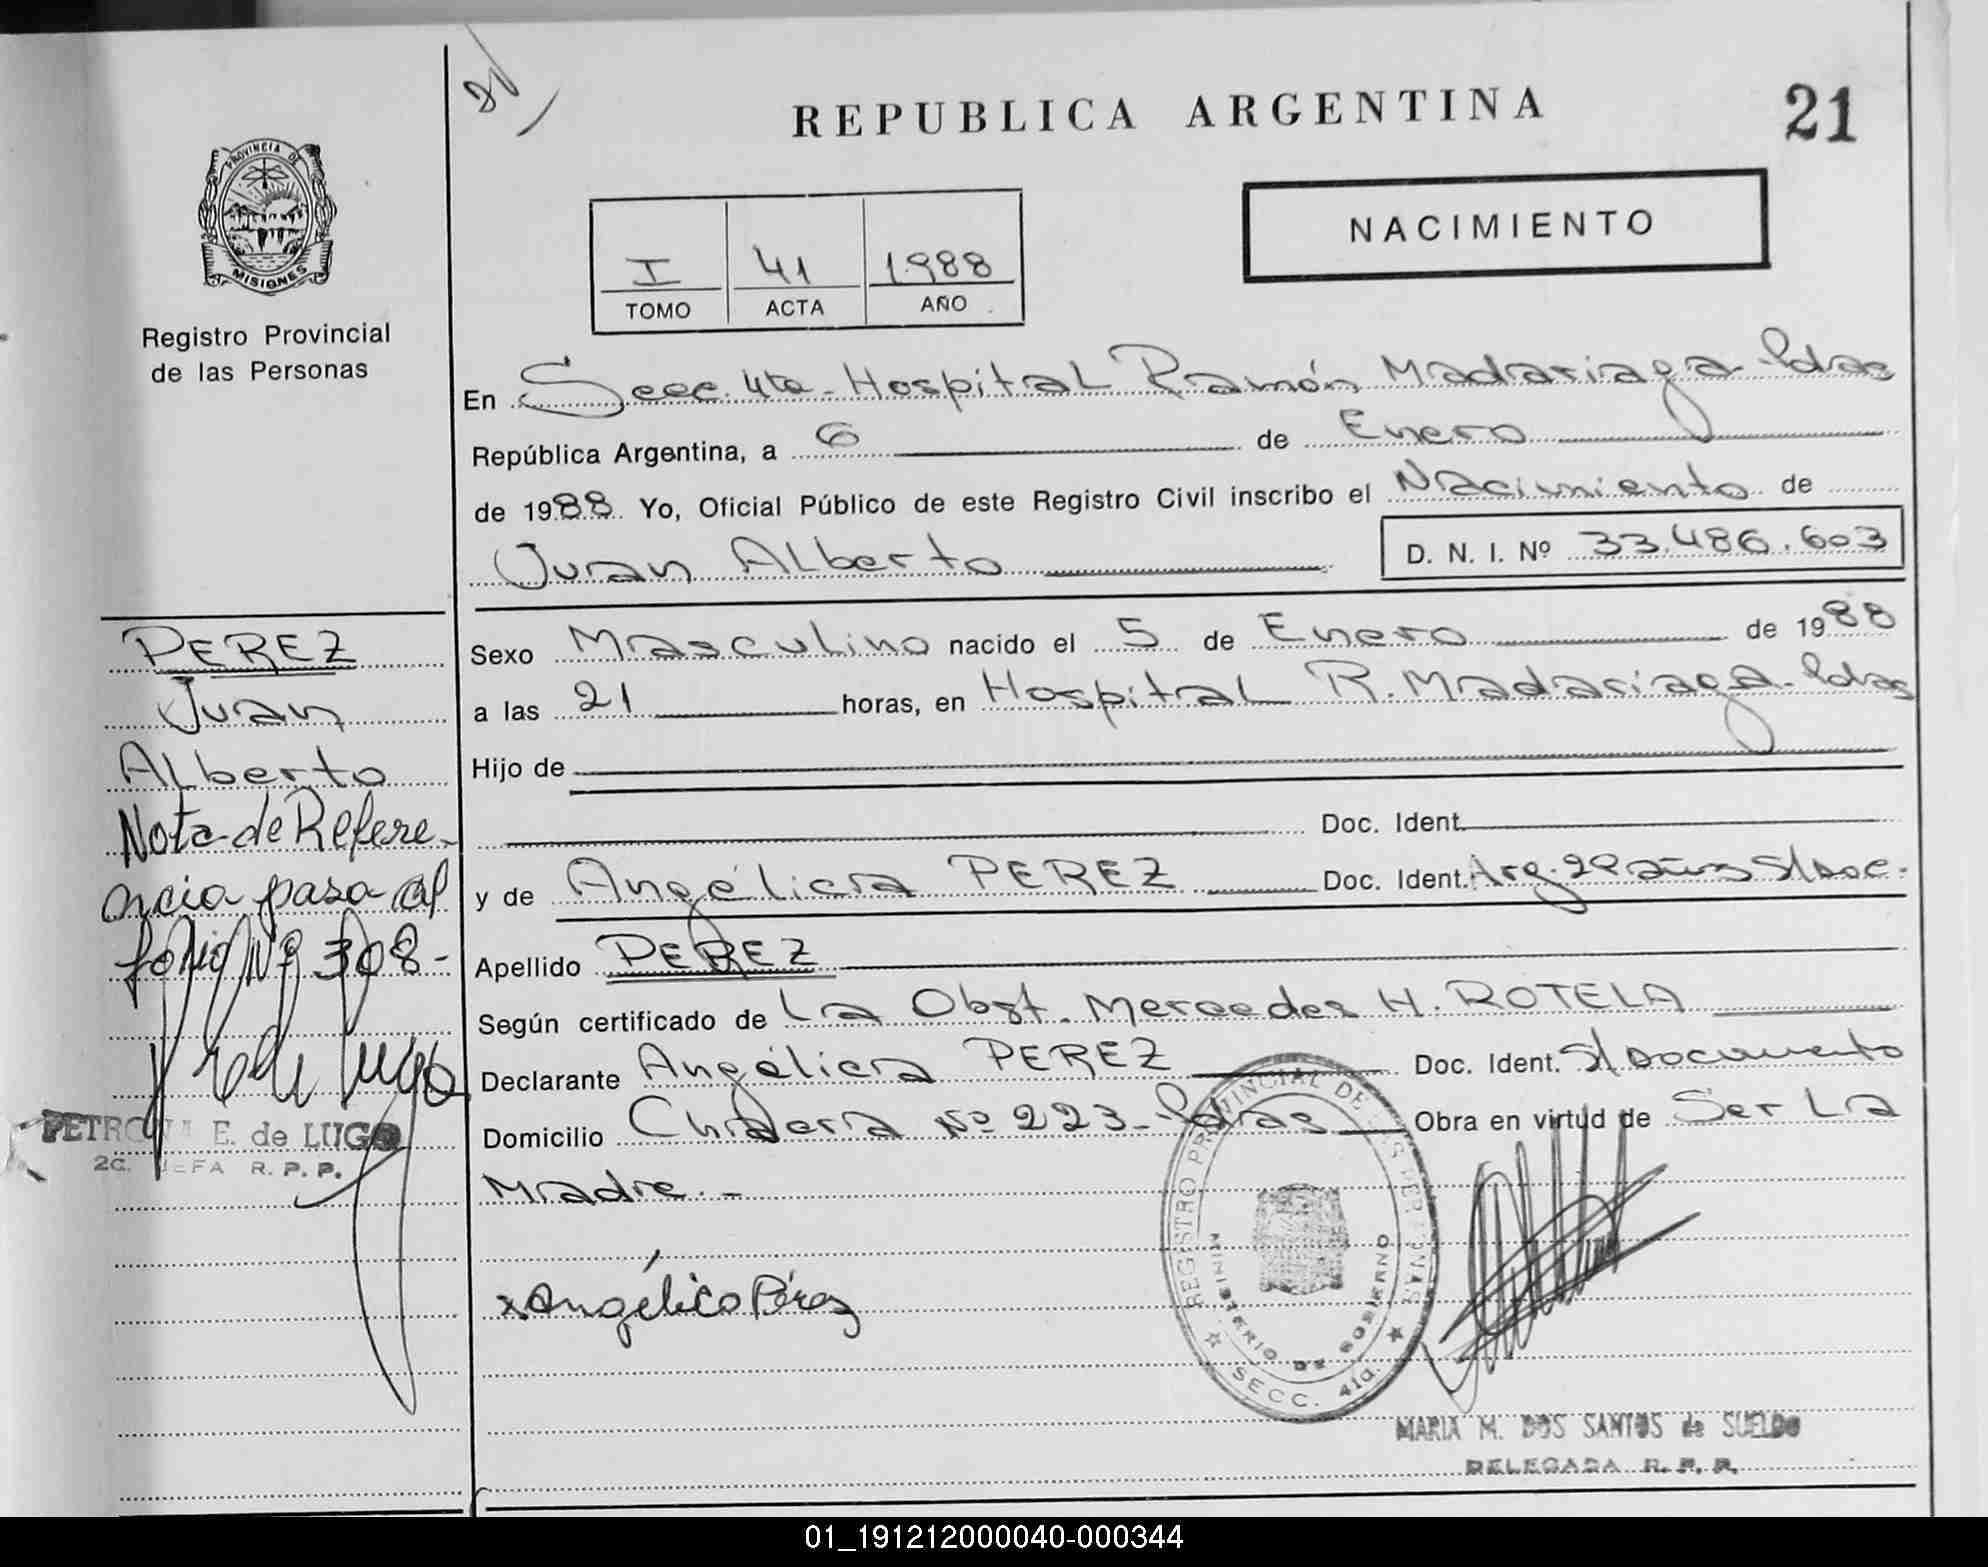 REPUBLICA ARGENTINA
21
PROVINCIA DE
MISIONES
Registro Provincial
de las Personas
NACIMIENTO
I 41 1988
TOMO ACTA AÑO
En Secc. 4ta - Hospital Ramón Madariaga - Pdas
República Argentina, a 6 de Enero
de 1988 Yo, Oficial Público de este Registro Civil inscribo el Nacimiento de
Juan Alberto
D. N. I. Nº 33.486.603
PEREZ
Juan
Alberto
Nota de Refere-
ncia pasa al
folio Nº 308-
PETRONA E. de LUGO
JEFA R. P. P.
Sexo Masculino nacido el 5 de Enero de 1988
a las 21 horas, en Hospital R. Madariaga - Pdas
Hijo de
Doc. Ident.
y de Angélica PEREZ Doc. Ident. Arg. años S/Doc.
Apellido PEREZ
Según certificado de La Obst. Mercedes H. ROTELA
Declarante Angélica PEREZ Doc. Ident. S/Documento
Domicilio Nº 223 - Pdas Obra en virtud de Ser La
Madre. -
x Angélica Pérez
REGISTRO PROVINCIAL DE LAS PERSONAS
MINISTERIO DE GOBIERNO
SECC. 4ta.
MARIA M. DOS SANTOS de SUELDO
DELEGADA R. P. P.
01_191212000040-000344